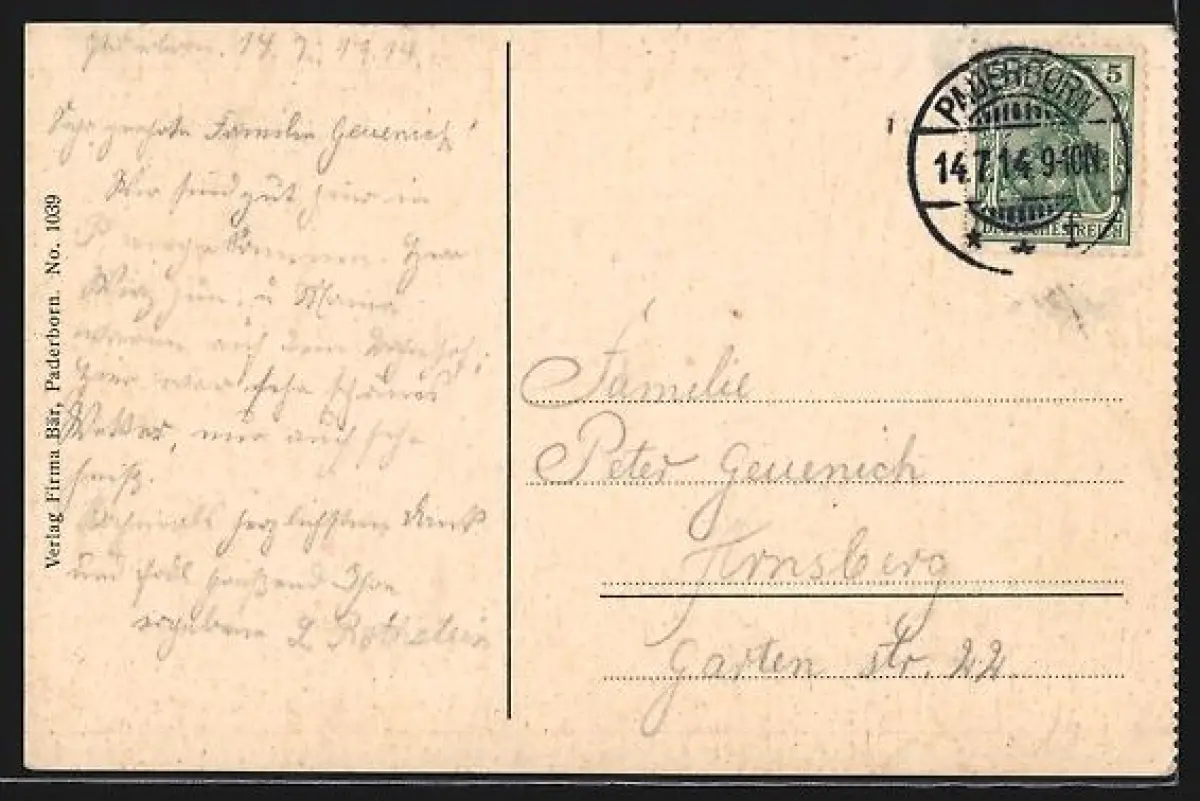 Paderborn. 14. 7. 1914.
Sehr geehrte Familie Geuenich!
Wir sind gut hier in
P. angekommen. Herr
u. 
waren auf dem Bahnhof;
Hier war sehr schönes
Wetter, nur auch sehr
heiß.
Nochmals herzlichsten Dank
und grüßend Ihre
ergebene L Rothstein
Verlag Firma Bär, Paderborn. No. 1039
PADERBORN
14.7.14. 9-10N.
* * f
5
DEUTSCHES REICH
Familie
Peter Geuenich
Arnsberg
Garten str. 22.